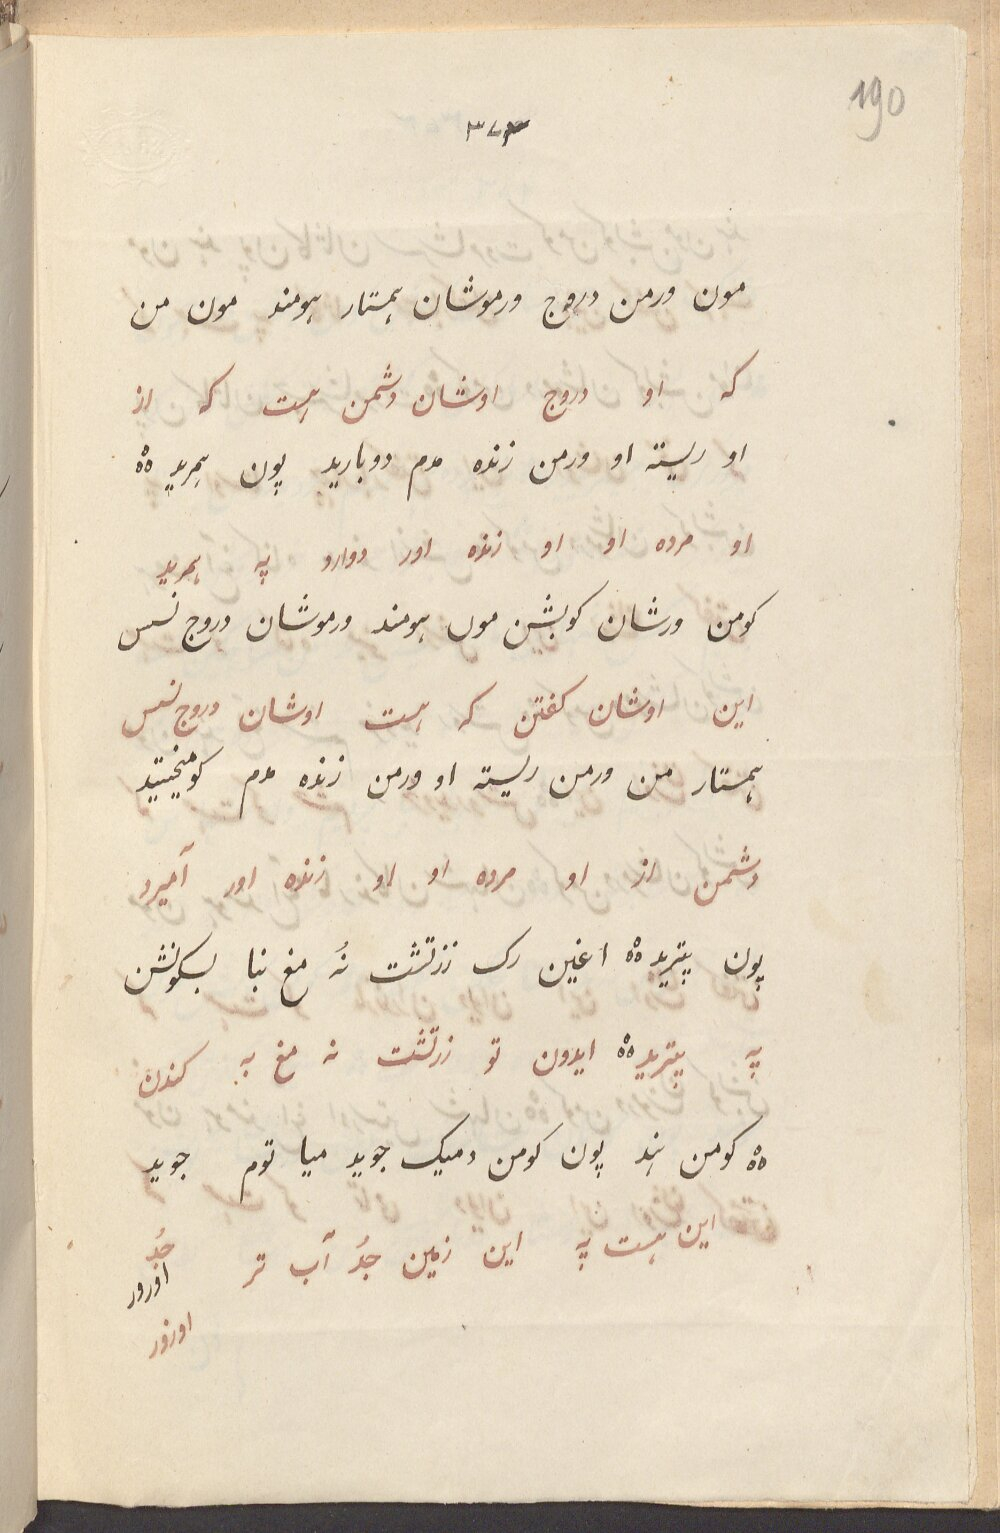 190
مون ورمن دروج ورموشان همستار هومند مون من
که او دروج اوشان دشمن هست که از
او ریسته او ورمن زنده مدم دوبارید پون همرید ۀۀ
او مرده او او زنده اور دوارد په همرید
کومن ورشان کوبشن مون هومند ورموشان دروج نسس
این اوشان کفتن که هست اوشان دروج نسس
همستار من ورمن ریسته او ورمن زنده مدم کومیختید
دشمن از او مرده او او زنده اور آمیرد
پون پیترید ۀۀ اغین رک زرتشت نه مغ نبا بسکونشن
په پیترید ۀۀ ایدون تو زرتشت نه مغ به کندن
ۀۀ کومن هند پون کومن دمیک جوید میا توم جوید
این هست په این زمین جد آب تر جد
اورور
اورور